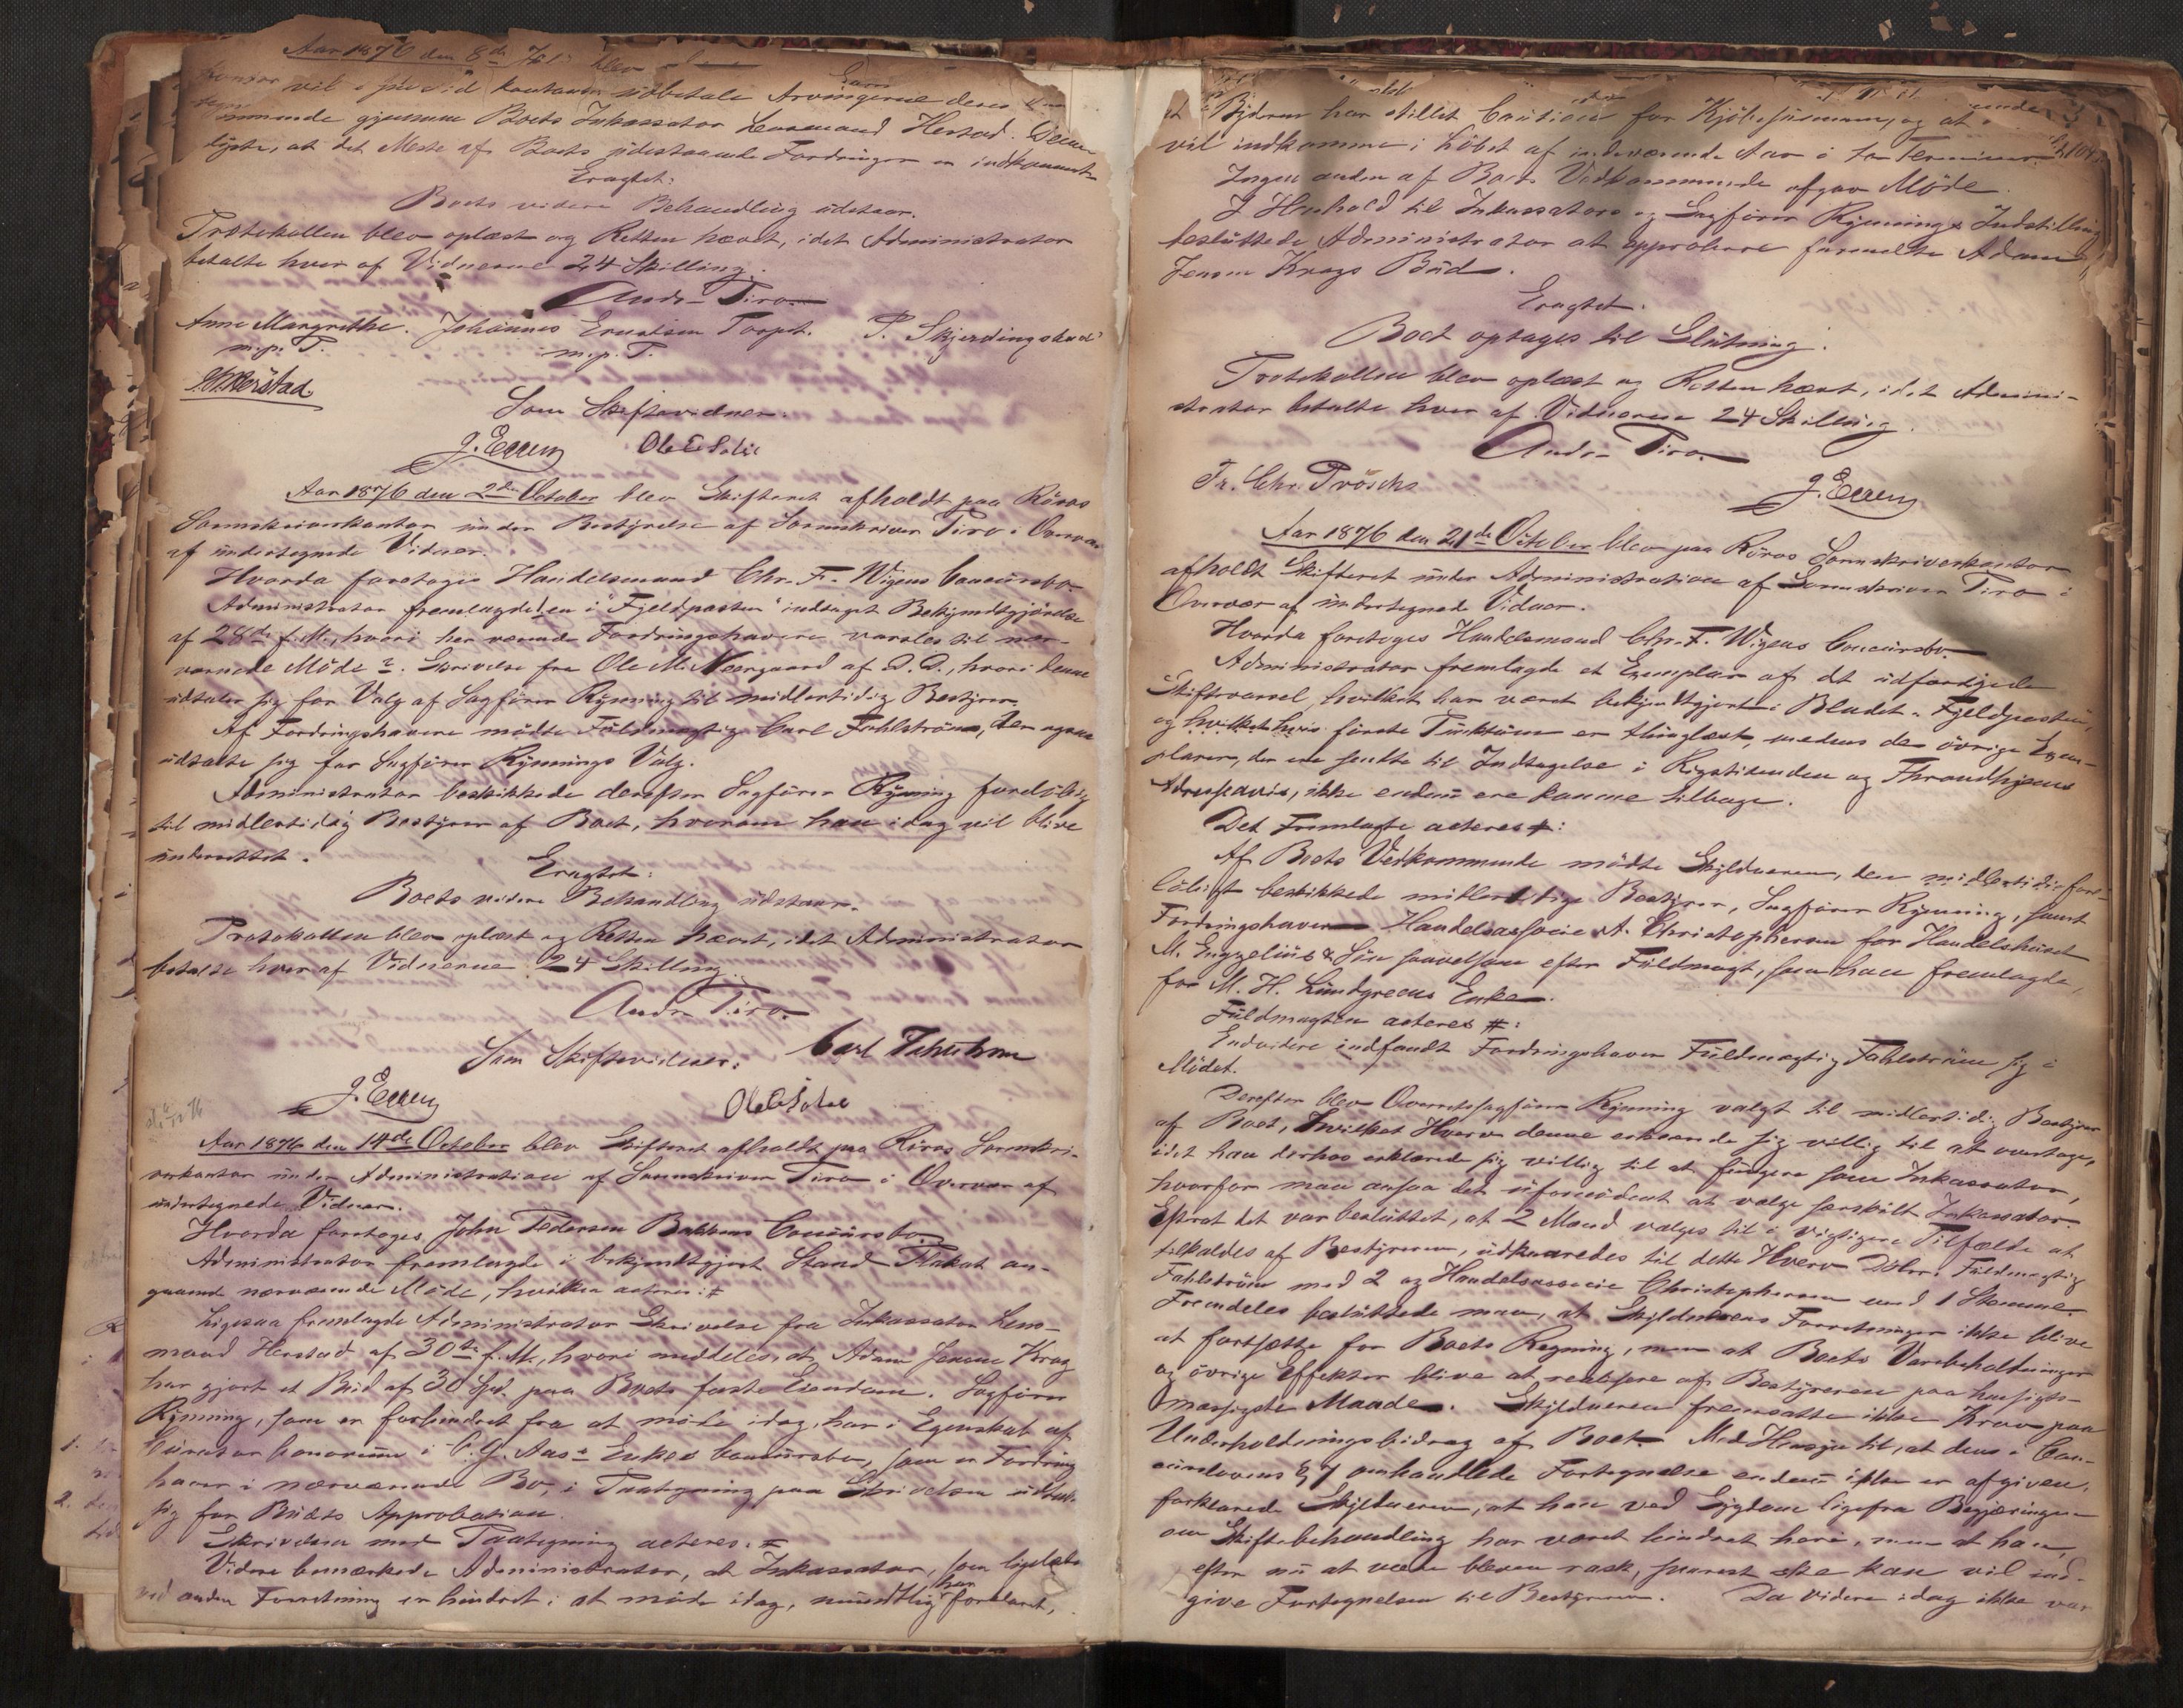 Aar 1876 den 8de blev
vil udbetale Arvingerne deres
gjennem Boets Inkassator Lensmand Herstad. Denne
at det Meste af Boets udestaaende Fordringer er indkommet.
Eragtet:
Boets videre Behandling udstaar.
Protokollen blev oplæst og Retten hævet, idet Administrator
betalte hver af Vidnerne 24 Skilling.
Andr. Tiro.
Anne Margrethe. Johannes Torpet. P. Skjerdingstad
m.p.T. m.p.T.
Herstad
Som Skiftevidner:
J. Eggen
Aar 1876 den 2den October blev Skifteret afholdt paa Röros
Sorenskriverkontor under Bestyrelse af Sorenskriver Tiro i Overvær
af undertegnede Vidner.
Hvorda foretoges Handelsmand Chr. F. Wigens Concursbo.
Administrator fremlagde 1. en i "Fjeldposten" indtaget Bekjendtgjörelse
af 28de f. M., hvori her værende Fordringshavere varsles til nær-
værende Möde 2. Skrivelse fra Ole M. Neergaard af D. D., hvori denne
udtaler sig for Valg af Sagförer Rynning til midlertidig Bestyrer.
Af Fordringshavere mödte Fuldmægtig Carl Fahlström, der ogsaa
udtalte sig for Sagförer Rynnings Valg.
Administrator beskikkede derefter Sagförer Rynning forelöbig
til midlertidig Bestyrer af Boet, hvorom han idag vil blive
underrettet.
Eragtet:
Boets videre Behandling udstaar.
Protokollen blev oplæst og Retten hævet, idet Administrator
betalte hver af Vidnerne 24 Skilling.
Andr. Tiro.
Som Skiftevidner: Carl Fahlström
J. Eggen
Aar 1876 den 14de October blev Skifteret afholdt paa Röros Sorenskri-
verkontor under Administration af Sorenskriver Tiro i Overvær af
undertegnede Vidner.
Hvorda foretoges John Pedersen Bakkens Concursbo.
Administrator fremlagde i bekjendtgjort Stand Plakat an-
gaaende nærværende Möde, hvilken acteres: #
Ligesaa fremlagde Administrator Skrivelse fra Inkassator Lens-
mand Herstad af 30te f. M., hvori meddeles, at Adam Jensen Krog
har gjort et Bud af 30 Spd. paa Boets faste Eiendom. Sagförer
Rynning, som er forhindret fra at möde idag, har i Egenskab af
Curator bonorum i C. G. Aas's Enkes Concursbo, som er Fordrings-
haver i nærværende Bo, i Paategning paa Skrivelsen udtalt
sig for Budets Approbation.
Skrivelsen med Paategning acteres: #
Videre bemærkede Administrator, at Inkassator, som ligeledes
ved anden Forretning er hindret i at möde idag, mundtlig har forklaret,
at Byderen har stillet Caution for Kjöbesummen, og at
vil indkomme i Löbet af indeværende Aar i to Terminer.
Ingen anden af Boets Vedkommende afgav Möde.
I Henhold til Inkassators og Sagförer Rynnings Indstilling
besluttede Administrator at approbere formeldte Adam
Jensen Krogs Bud.
Eragtet.
Boet optages til Slutning.
Protokollen blev oplæst og Retten hævet, idet Admini-
strator betalte hver af Vidnerne 24 Skilling.
Andr. Tiro.
Fr. Chr. Prösch J. Eggen
Aar 1876 den 21de October blev paa Röros Sorenskriverkontor
afholdt Skifteret under Administration af Sorenskriver Tiro i
Overvær af undertegnede Vidner.
Hvorda foretoges Handelsmand Chr. F. Wigens Concursbo.
Administrator fremlagde et Exemplar af det udfærdigede
Skiftevarsel, hvilket har været bekjendtgjort i Bladet "Fjeldposten",
og hvilket hvis förste Punktum er thinglæst, medens de övrige Exem-
plarer, der ere sendte til Indtagelse i Rigstidenden og Throndhjems
Adresseavis, ikke endnu ere komne tilbage.
Det Fremlagte acteres #:
Af Boets Vedkommende mödte Skyldneren, den midlertidig fore-
löbigt beskikkede midlertidige Bestyrer, Sagförer Rynning, samt
Fordringshaverne Handelsassocie A. Christophersen for Handelshuset
M. Engzelius & Sön saavelsom efter Fuldmagt, som han fremlagde,
for M. H. Lundgreens Enke.
Fuldmagten acteres #:
Endvidere indfandt Fordringshaver Fuldmægtig Fahlström sig i
Mödet.
Derefter blev Overretssagförer Rynning valgt til midlertidig Bestyrer
af Boet, hvilket Hverv denne erklærede sig villig til at overtage,
idet han derhos erklærede sig villig til at fungere som Inkassator,
hvorfor man ansaa det ufornödent at vælge særskilt Inkassator.
Efterat det var besluttet, at 2 Mænd vælges til i vigtigere Tilfælde at
tilkaldes af Bestyreren, udkaaredes til dette Hverv DHrr. Fuldmægtig
Fahlström med 2 og Handelsassocie Christophersen med 1 Stemme.
Fremdeles besluttede man, at Skyldnerens Forretninger ikke blive
at fortsætte for Boets Regning, men at Boets Varebeholdninger
og övrige Effekter blive at realisere af Bestyreren paa hensigts-
mæssigste Maade. Skyldneren fremsatte ikke Krav paa
Underholdningsbidrag af Boet. Med Hensyn til, at den i Con-
curslovens § 7 omhandlede Fortegnelse endnu ikke er afgiven,
forklarede Skyldneren, at han ved Sygdom ligefra Begjæringen
om Skiftebehandling har været hindret heri, men at han,
efter nu at være bleven rask, snarest ske kan vil ind-
give Fortegnelsen til Bestyreren. Da videre idag ikke var